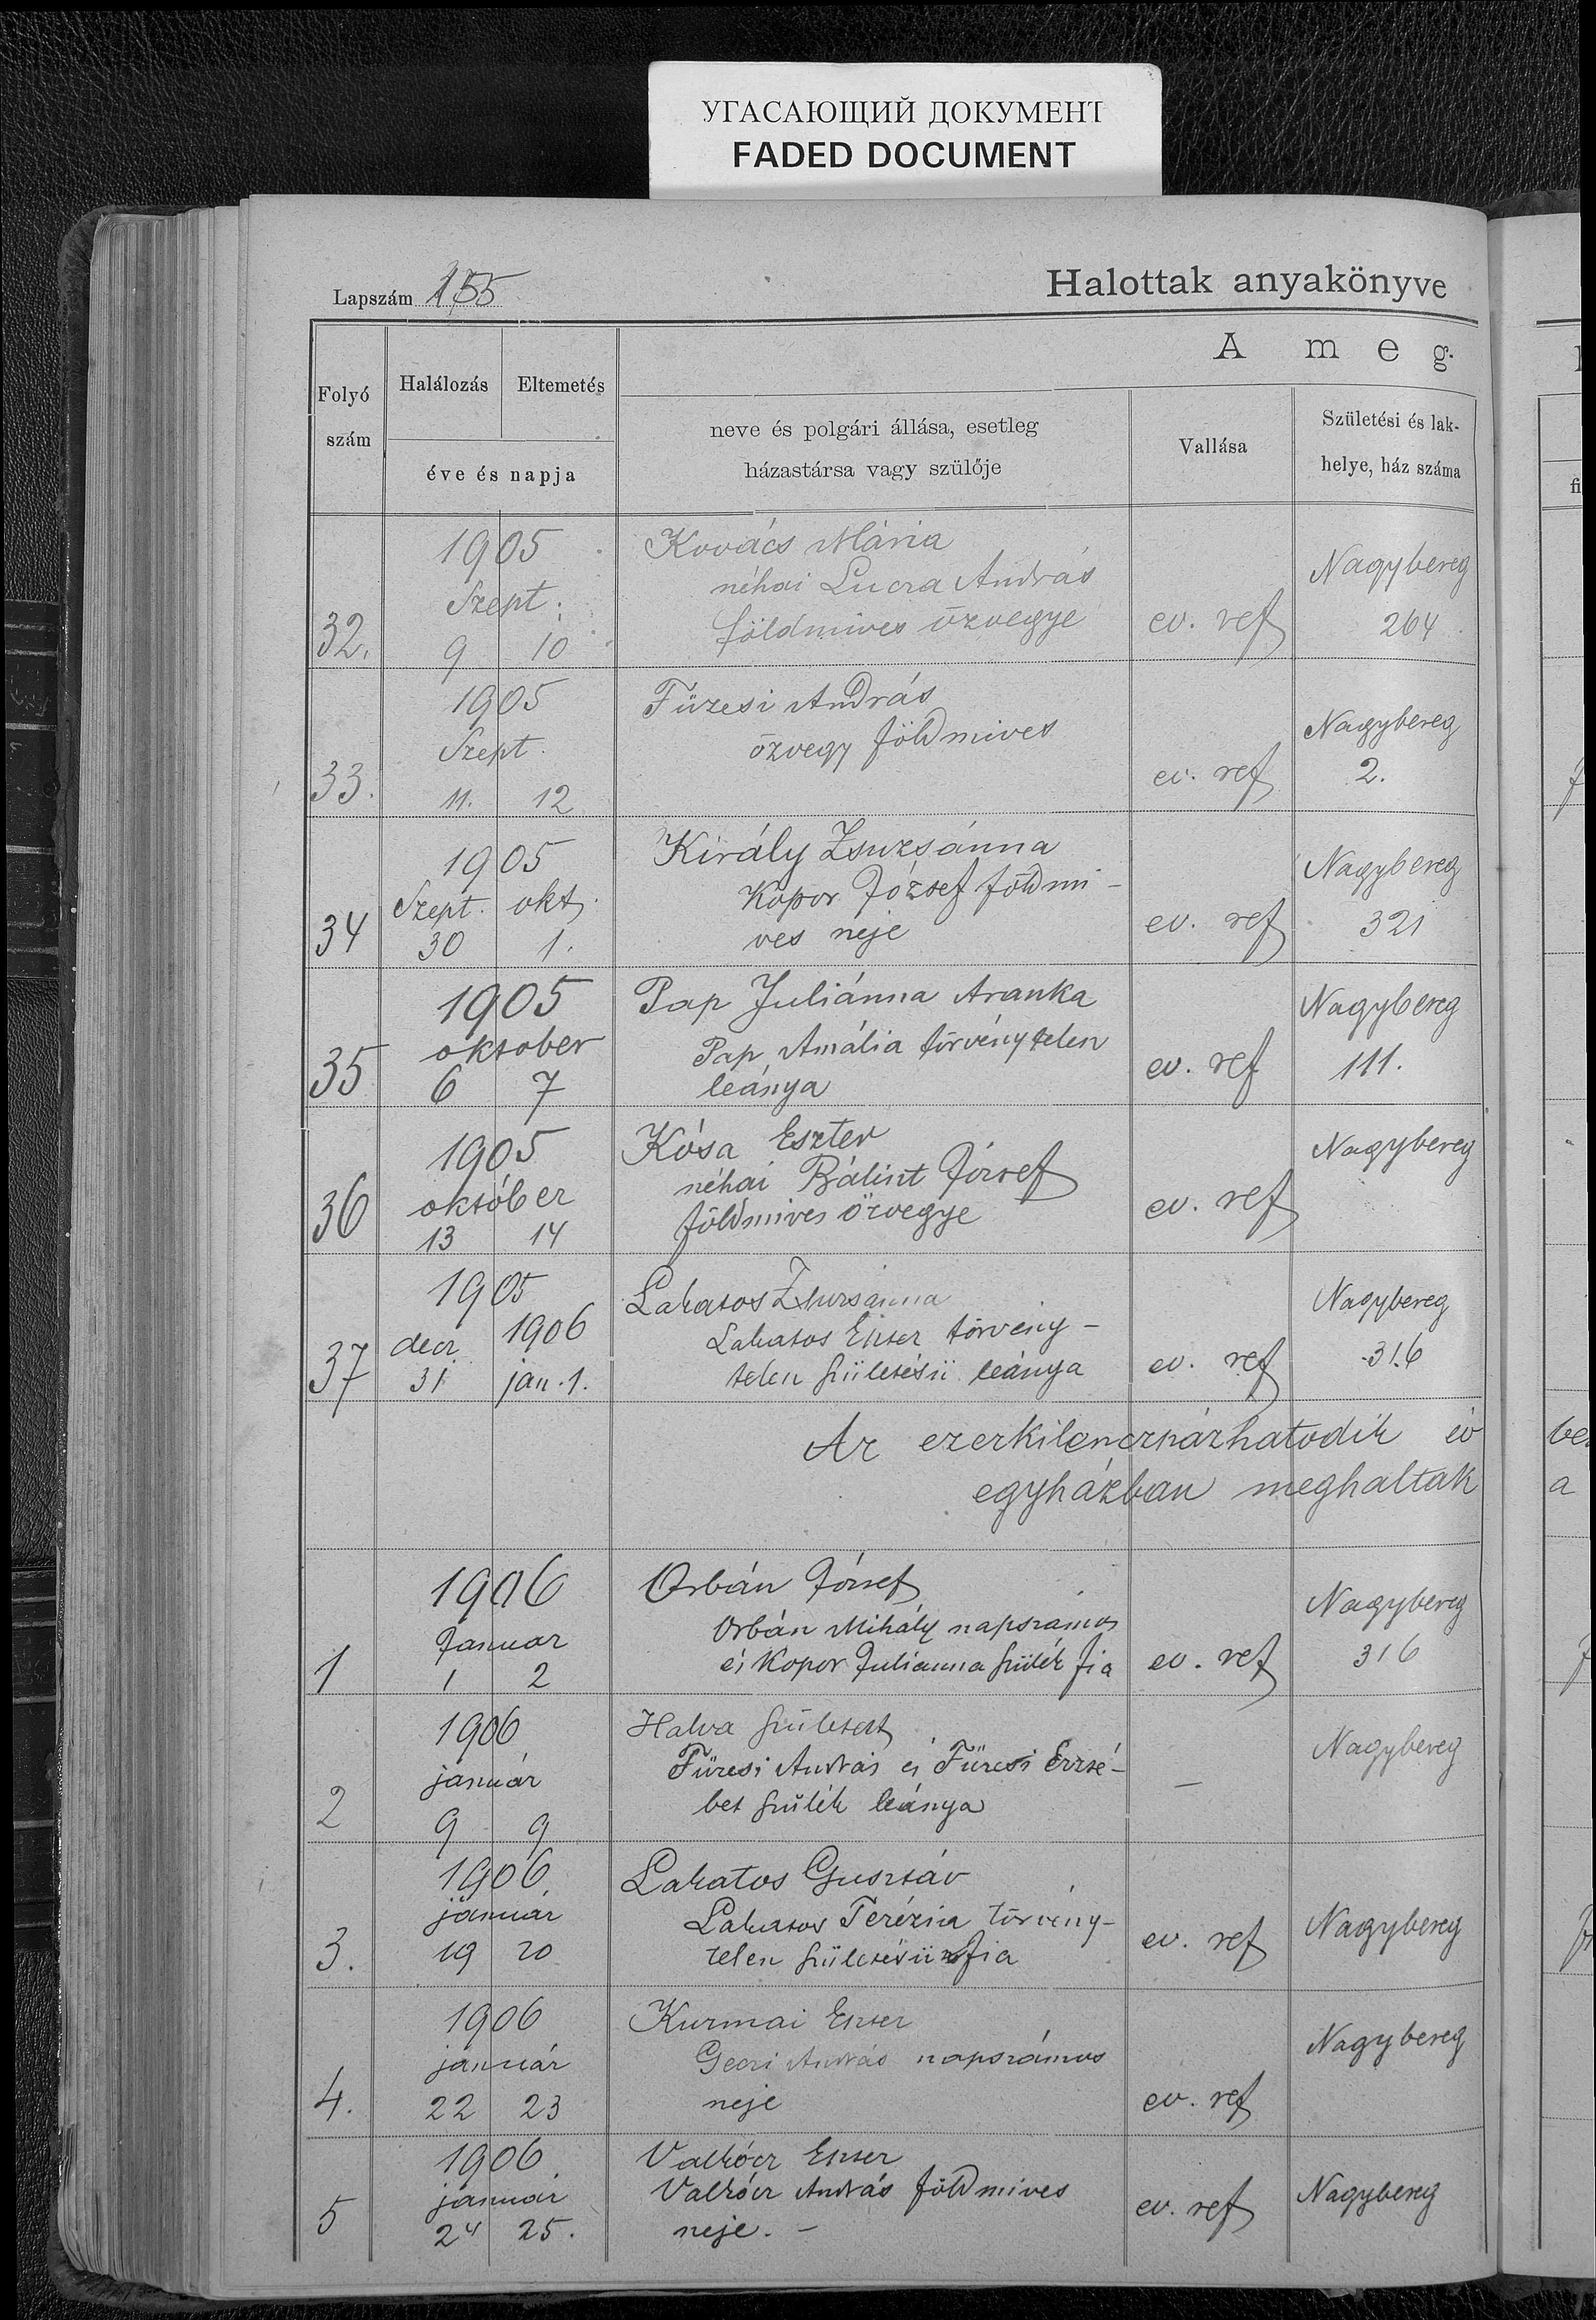 УГАСАЮЩИЙ ДОКУМЕНТ
FADED DOCUMENT
Lapszám 155
Halottak anyakönyve
A meg-
Folyó szám
Halálozás Eltemetés
éve és napja
neve és polgári állása, esetleg
házastársa vagy szülője
Vallása
Születési és lak-
helye, ház száma
1905 Kovács Mária
Szept. néhai Lucza András Nagybereg
32. 9 10 földmives özvegye ev. ref 264
1905 Füzesi András
Szept. özvegy földmives Nagybereg
33. 11. 12 ev. ref 2.
1905 Király Zsuzsánna Nagybereg
Szept. okt. Kopor József földmi-
34 30 1. ves neje ev. ref 321
1905 Pap Juliánna Aranka Nagybereg
oktober Pap Amália törvénytelen
35 6 7 leánya ev. ref 111.
1905 Kósa Eszter Nagybereg
október néhai Bálint József
36 13 14 földmives özvegye ev. ref
1905 Lakatos Zsuzsánna Nagybereg
decz 1906 Lakatos Eszter törvény-
37 31 jan. 1. telen születésü leánya ev. ref 316
Az ezerkilenczszázhatodik év
egyházban meghaltak
1906 Orbán József Nagybereg
Januar Orbán Mihály napszámos
1 1 2 és Kopor Julianna szülék fia ev. ref 316
1906 Halva született Nagybereg
január Füzesi András és Füzesi Erzsé-
2 9 9 bet szülék leánya —
1906 Lakatos Gusztáv
január Lakatos Terézia törvény- Nagybereg
3. 19 20 telen születésü fia ev. ref
1906 Kurmai Eszter Nagybereg
január Geczi András napszámos
4. 22 23 neje ev. ref
1906 Valkócz Eszter
január Valkócz András földmives Nagybereg
5 24 25. neje. – ev. ref